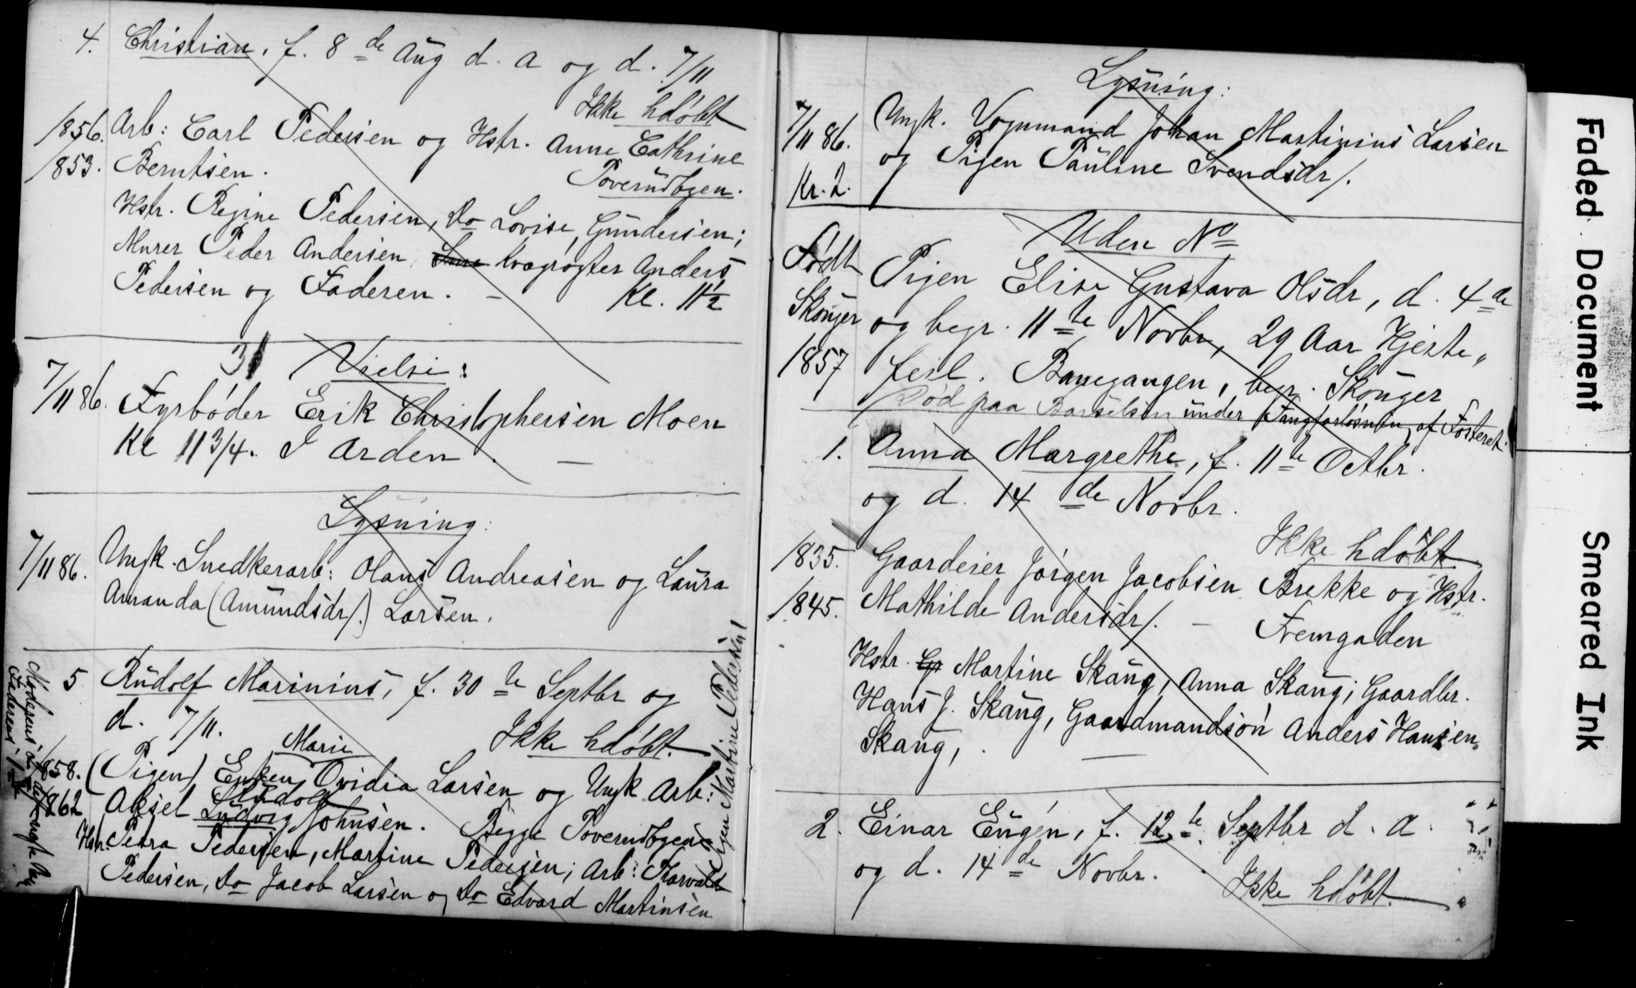 4. Christian, f. 8de Aug d. a og d. 7/11
Ikke hdöbt
1856. Arb: Carl Pedersen og Hstr. Anne Cathrine
1853. Berntsen. Poverudbyen.
Hstr. Regine Pedersen, Do Lovise Gundersen;
Murer Peder Andersen, Kvægrögter Anders
Pedersen og Faderen. – Kl. 11½
31 Vielse:
7/11 86. Fyrböder Erik Christophersen Moen
Kl 11 3/4. I Arden. –
Lysning:
7/11 86. Ungk. Snedkerarb: Olaus Andreasen og Laura
Amanda (Amundsdr/.) Larsen.
5 Rudolf Marinius, f. 30te Septbr og
d. 7/11. Ikke hdöbt.
Marie
1858. (Pigen) Enken Ovidia Larsen og Ungk. Arb:
Rudolf
1862 Aksel Ludvig Johnsen. Begge Poverudbyen
Hstr. Petra Pedersen, Martine Pedersen; Arb: Torvald
Pedersen, Do Jacob Larsen og Do Edvard Martinsen
Pigen Martine Pedersen
Moderens
Faderens
Lysning:
7/11 86. Ungk. Vognmand Johan Martinius Larsen
Kr. 2. og Pigen Pauline Svendsdr/.
Uden No
Födt Pigen Elise Gustava Olsdr, d. 4de
Skouger og begr. 11te Novbr, 29 Aar Hjerte„
1857 feil. Banegangen, begr. Skouger
Död paa Barselseng under af Fosteret.
1. Anna Margrethe, f. 11te Octbr.
og d. 14de Novbr.
Ikke hdöbt
1835. Gaardeier Jörgen Jacobsen Brekke og Hstr.
1845. Mathilde Andersdr/. – Fremgaden
Hstr. Martine Skaug, Anna Skaug; Gaardbr.
Hans J. Skaug, Gaardmandsön Anders Hansen
Skaug, –
2. Einar Eugén, f. 12te Septbr d. a.
og d. 14de Novbr. Ikke hdöbt.
Faded Document
Smeared Ink